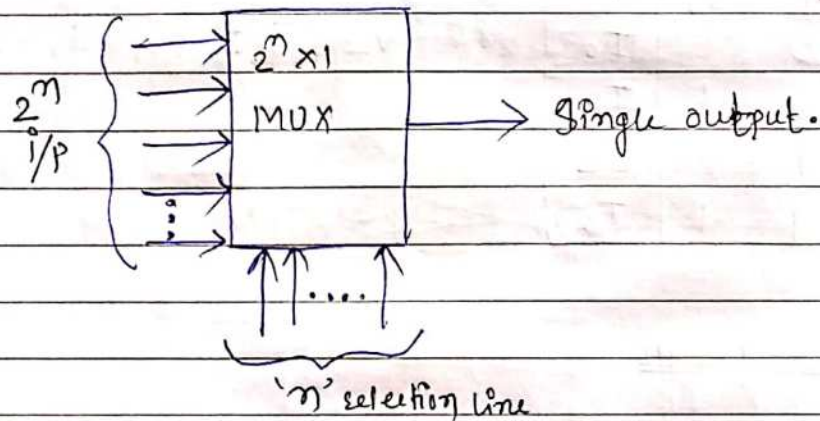 2ⁿ i/p
2ⁿ X1
MUX
Single output.
'n' selection line